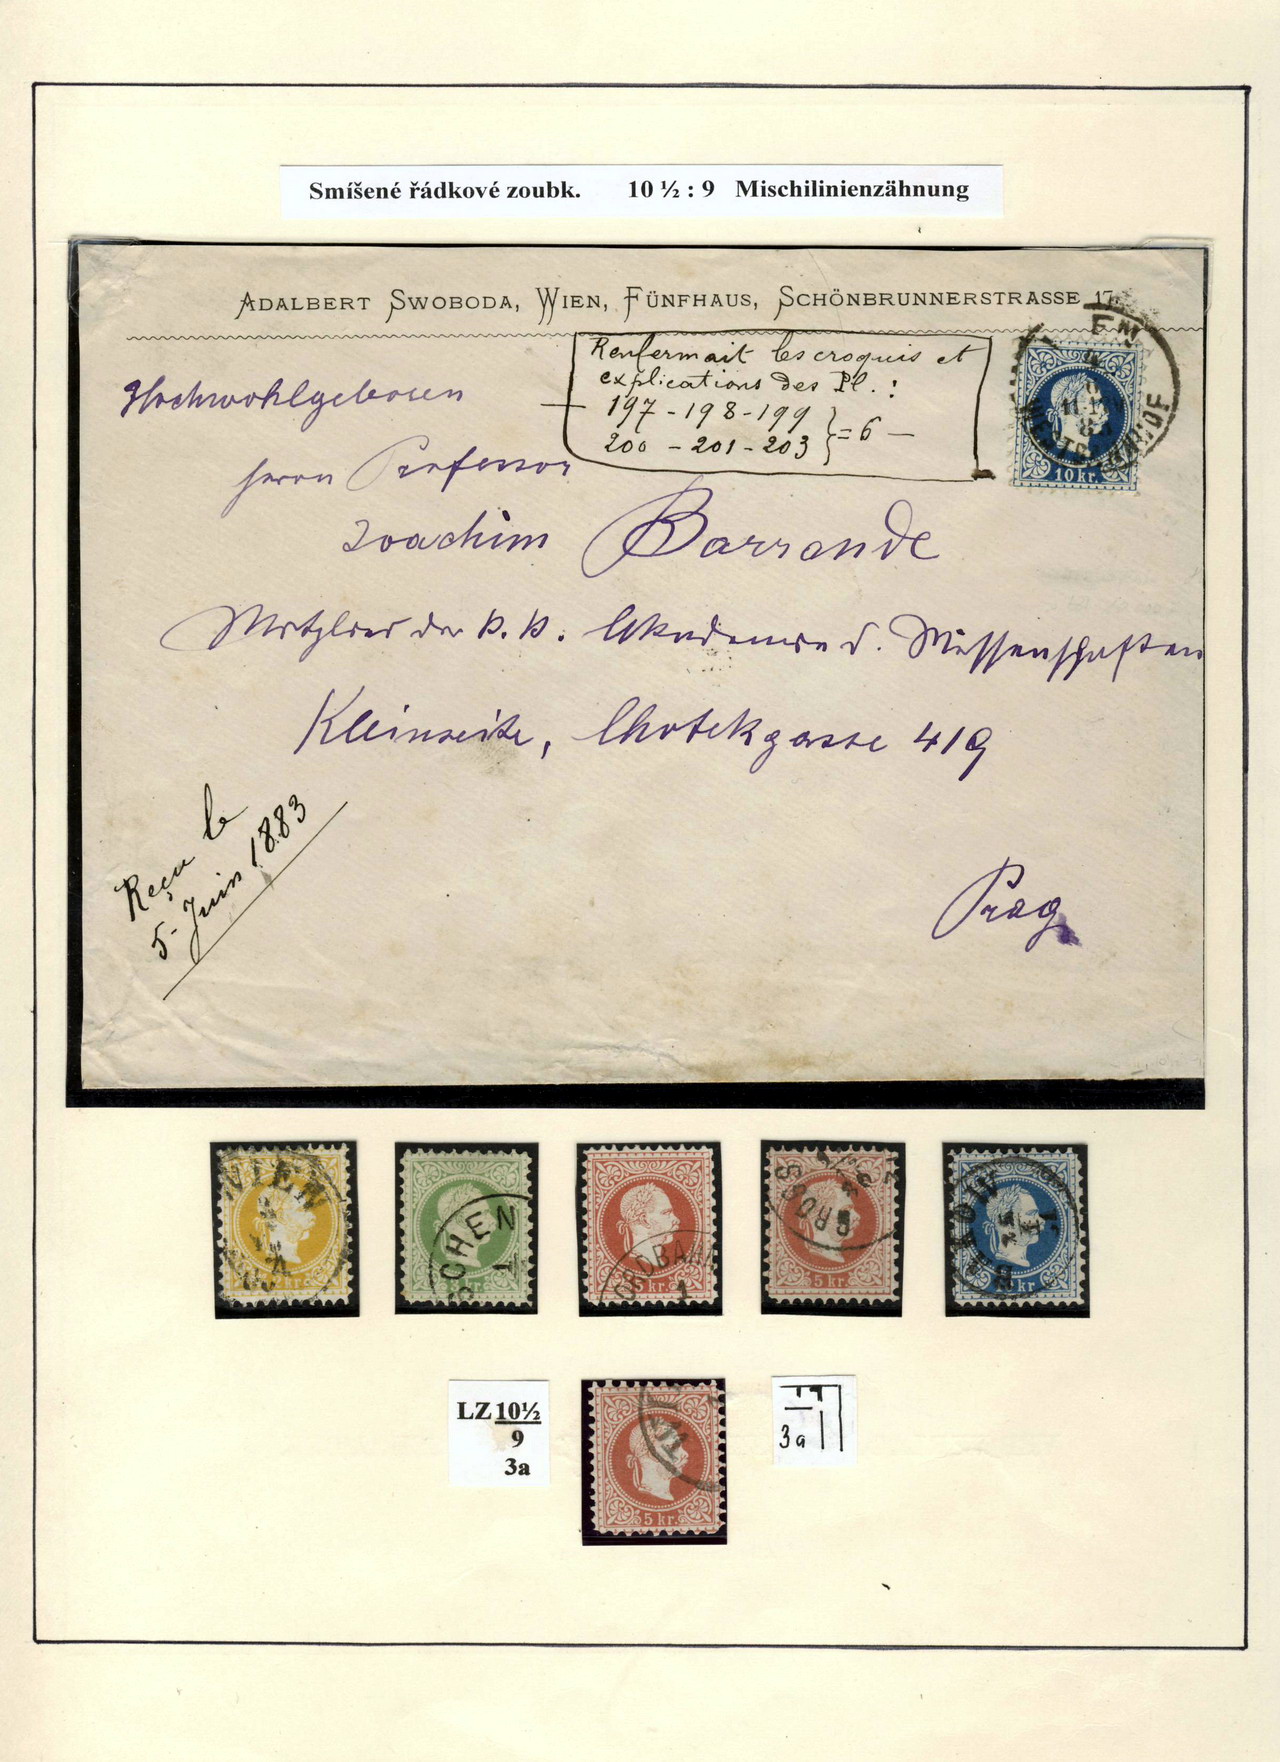 Smíšené řádkové zoubk. 10 ½ : 9 Mischilinienzähnung
ADALBERT SWOBODA, WIEN, FÜNFHAUS, SCHÖNBRUNNERSTRASSE 17
Renfermait les croquis et
explications des Pl. :
197 - 198 - 199
200 - 201 - 203 } = 6 —
Hochwohlgeboren
Herrn Professor
Joachim Barrande
Mitglied der k. k. Akademie d. Wissenschaften
Kleinseite, Chotekgasse 419
Prag
Reçu le
5 Juin 1883
WESTBAHNHOF
10 kr.
WIEN
SCHEN
1
3 kr.
1
5 kr.
GROSS
5 kr.
LZ 10½
9
3a
5 kr.
3a